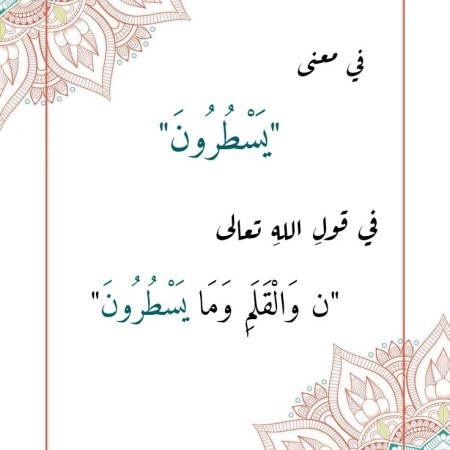 في معنى
"يَسْطُرُونَ"
في قولِ اللهِ تعالى
"ن وَالْقَلَمِ وَمَا يَسْطُرُونَ"